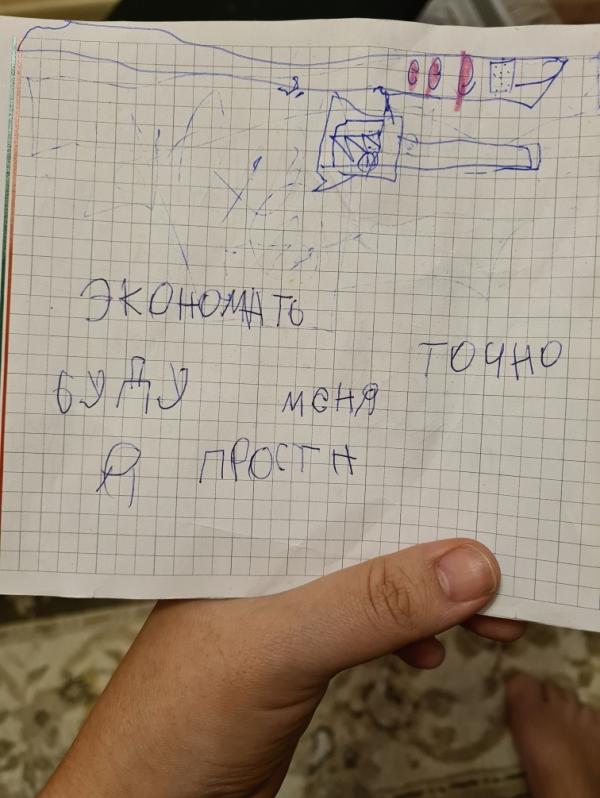 ЭКОНОМАТЬ
ТОЧНО
БУДУ МЕНЯ
Я ПРОСТИ